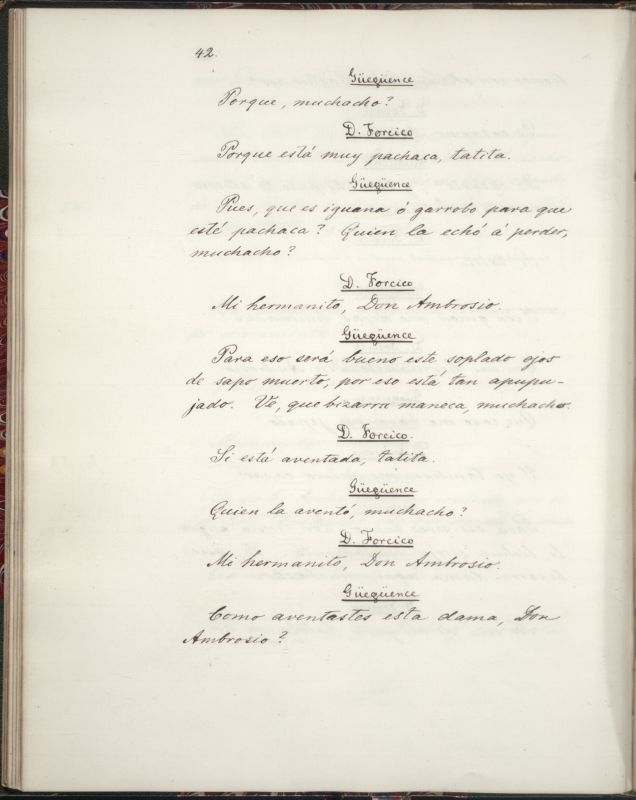 42.
Güegüence
Porque, muchacho?
D. Forcico
Porque está muy pachaca, tatita.
Güegüence
Pues, que es iguana ó garrobo para que
esté pachaca? Quien la echó á perder,
muchacho?
D. Forcico
Mi hermanito, Don Ambrosio.
Güegüence
Para eso será bueno este soplado ojos
de sapo muerto, por eso está tan apupu-
jado. Ve, que bizarra maneca, muchacho.
D. Forcico.
Si está aventada, tatita.
Güegüence
Quien la aventó, muchacho?
D. Forcico
Mi hermanito, Don Ambrosio.
Güegüence
Como aventastes esta dama, Don
Ambrosio?